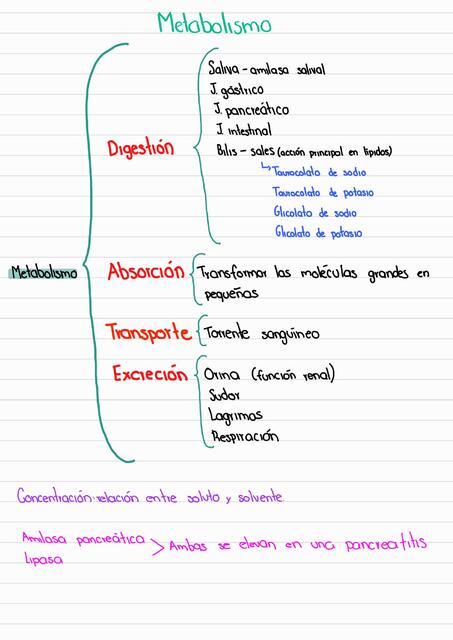 Metabolismo
Metabolismo
Digestión
Saliva - amilasa salival
J. gástrico
J. pancreático
J. intestinal
Bilis - sales (acción principal en lípidos)
↳ Taurocolato de sodio
Taurocolato de potasio
Glicolato de sodio
Glicolato de potasio
Absorción
Transformar las moléculas grandes en
pequeñas
Transporte
Torrente sanguíneo
Excreción
Orina (función renal)
Sudor
Lagrimas
Respiración
Concentración: relación entre soluto y solvente
Amilasa pancreática
Lipasa
> Ambas se elevan en una pancreatitis